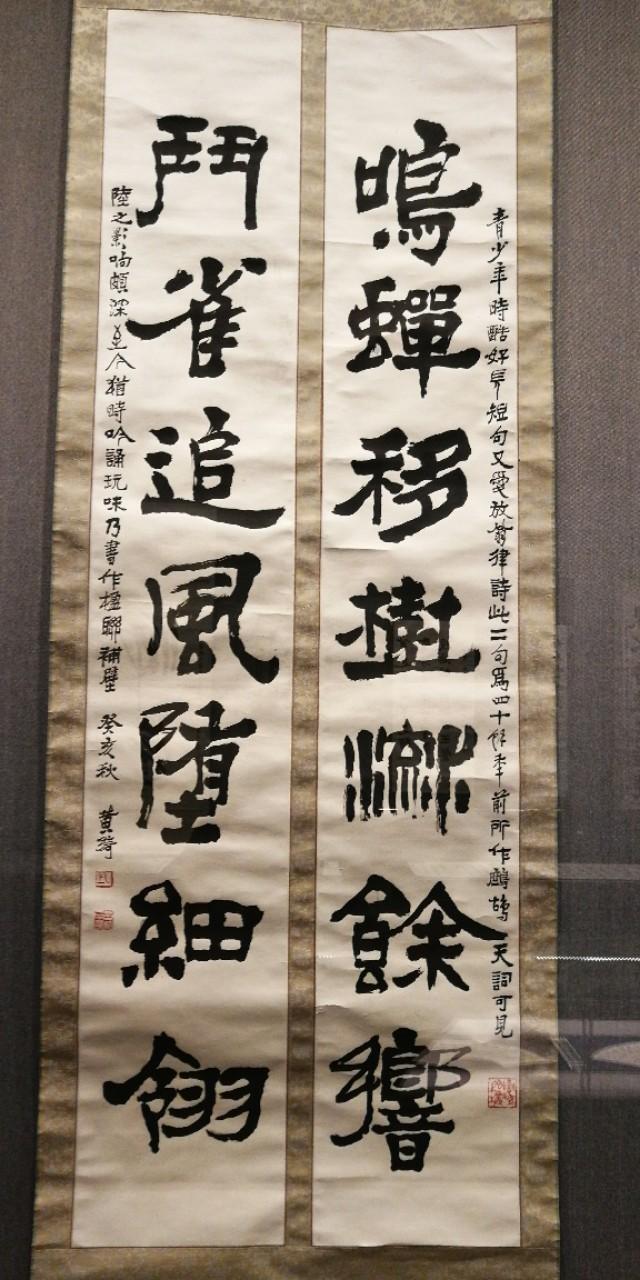 青少年時酷好長短句又愛放翁律詩此二句爲四十餘年前所作鷓鴣天詞可見
鳴蟬移樹流餘響
鬥雀追風墮細翎
陸之影响頗深至今猶時吟誦玩味乃書作楹聯補壁 癸亥秋 黄綺